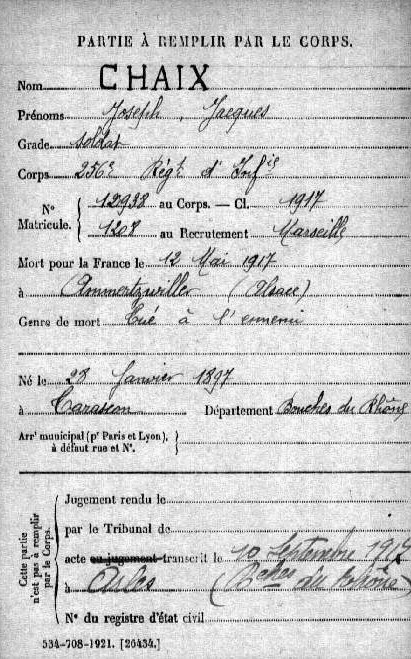 PARTIE À REMPLIR PAR LE CORPS.
Nom CHAIX
Prénoms Joseph, Jacques
Grade soldat
Corps 256e Régt d'Infie
N° Matricule. { 12938 au Corps. — Cl. 1917
1208 au Recrutement Marseille
Mort pour la France le 12 Mai 1917
à Ammertzwiller (Alsace)
Genre de mort Tué à l'ennemi
Né le 28 Janvier 1897
à Tarascon Département Bouches du Rhône
Arrt municipal (pr Paris et Lyon), à défaut rue et N°. }
Cette partie n'est pas à remplir par le Corps. {
Jugement rendu le
par le Tribunal de
acte ou jugement transcrit le 10 Septembre 1917
à Arles (Bches du Rhône)
N° du registre d'état civil
534-708-1921. [26434.]